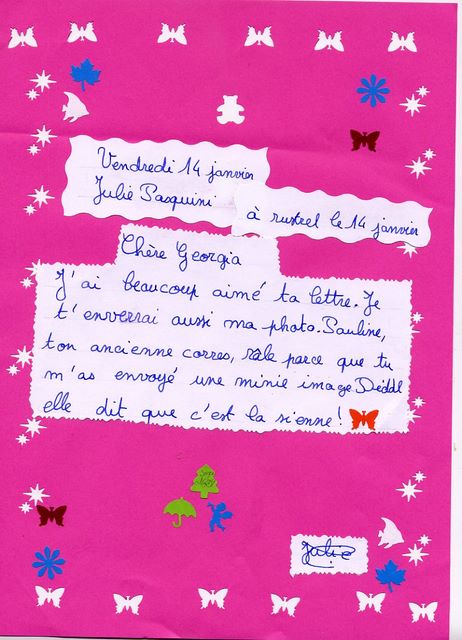 Vendredi 14 janvier
Julie Pasquini
à rustrel le 14 janvier
Chère Georgia
J'ai beaucoup aimé ta lettre. Je
t'enverrai aussi ma photo. Pauline,
ton ancienne corres, râle parce que tu
m'as envoyé une minie image Diddl
elle dit que c'est la sienne!
Julie